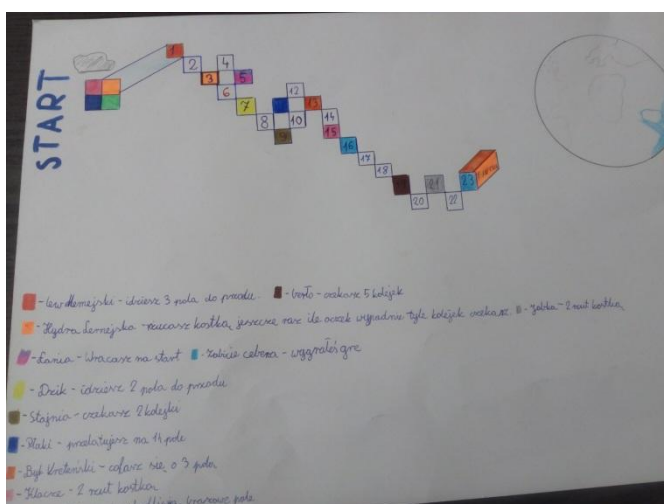 START
1
2
3
4
5
6
7
8
9
10
12
13
14
15
16
17
18
20
21
22
23
- lew Nemejski - idziesz 3 pola do przodu. - berło - czekasz 5 kolejek
- Hydra Lernejska - rzucasz kostką jeszcze raz ile oczek wypadnie tyle kolejek czekasz. - Jabłka - 2 rzut kostką
- Łania - Wracasz na start - Zabicie cerbera - wygrałeś grę
- Dzik - idziesz 2 pola do przodu
- Stajnia - czekasz 2 kolejki
- Ptaki - przelatujesz na 14 pole
- Byk Kreteński - cofasz się o 3 pola
- Klacze - 2 rzut kostką
pole